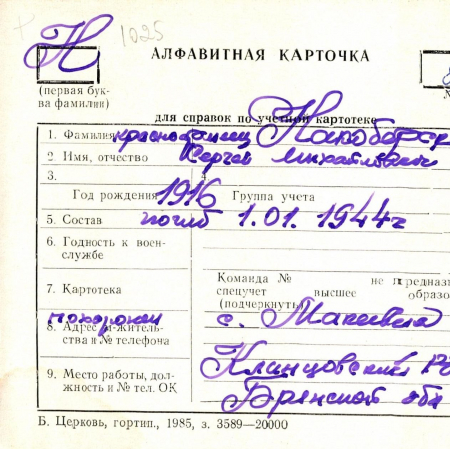 Н 1025
АЛФАВИТНАЯ КАРТОЧКА
(первая бук-
ва фамилии)
для справок по учетной картотеке
1. Фамилия красноармеец
2. Имя, отчество Сергей Михайлович
3.
4.
Год рождения 1916 Группа учета
5. Состав погиб 1.01.1944г
6. Годность к воен-
службе
7. Картотека
Команда №
не предназ
спецучет высшее образо
(подчеркнуть)
похоронен с.
8. Адрес житель-
ства и № телефона
Клинцовский
9. Место работы, дол-
жность и № тел. ОК
Брянской обл
Б. Церковь, гортип., 1985, з. 3589—20000